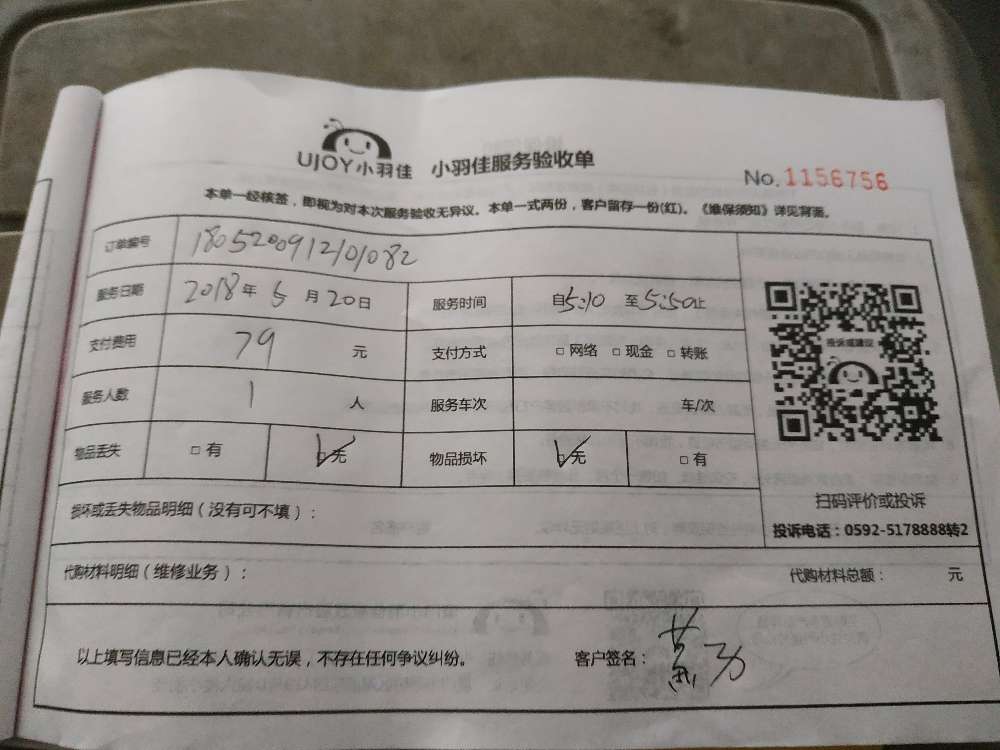 UJOY小羽佳 小羽佳服务验收单
No. 1156756
本单一经核签，即视为对本次服务验收无异议。本单一式两份，客户留存一份(红)。《维保须知》详见背面。
订单编号 1805200912101082
服务日期 2018年5月20日 服务时间 自5:10至5:50止
支付费用 79 元 支付方式 □网络 □现金 □转账
投诉或建议
服务人数 1 人 服务车次 车/次
物品丢失 □有 ☑无 物品损坏 ☑无 □有
扫码评价或投诉
损坏或丢失物品明细（没有可不填）：
投诉电话：0592-5178888转2
代购材料明细（维修业务）： 代购材料总额： 元
以上填写信息已经本人确认无误，不存在任何争议纠纷。 客户签名：